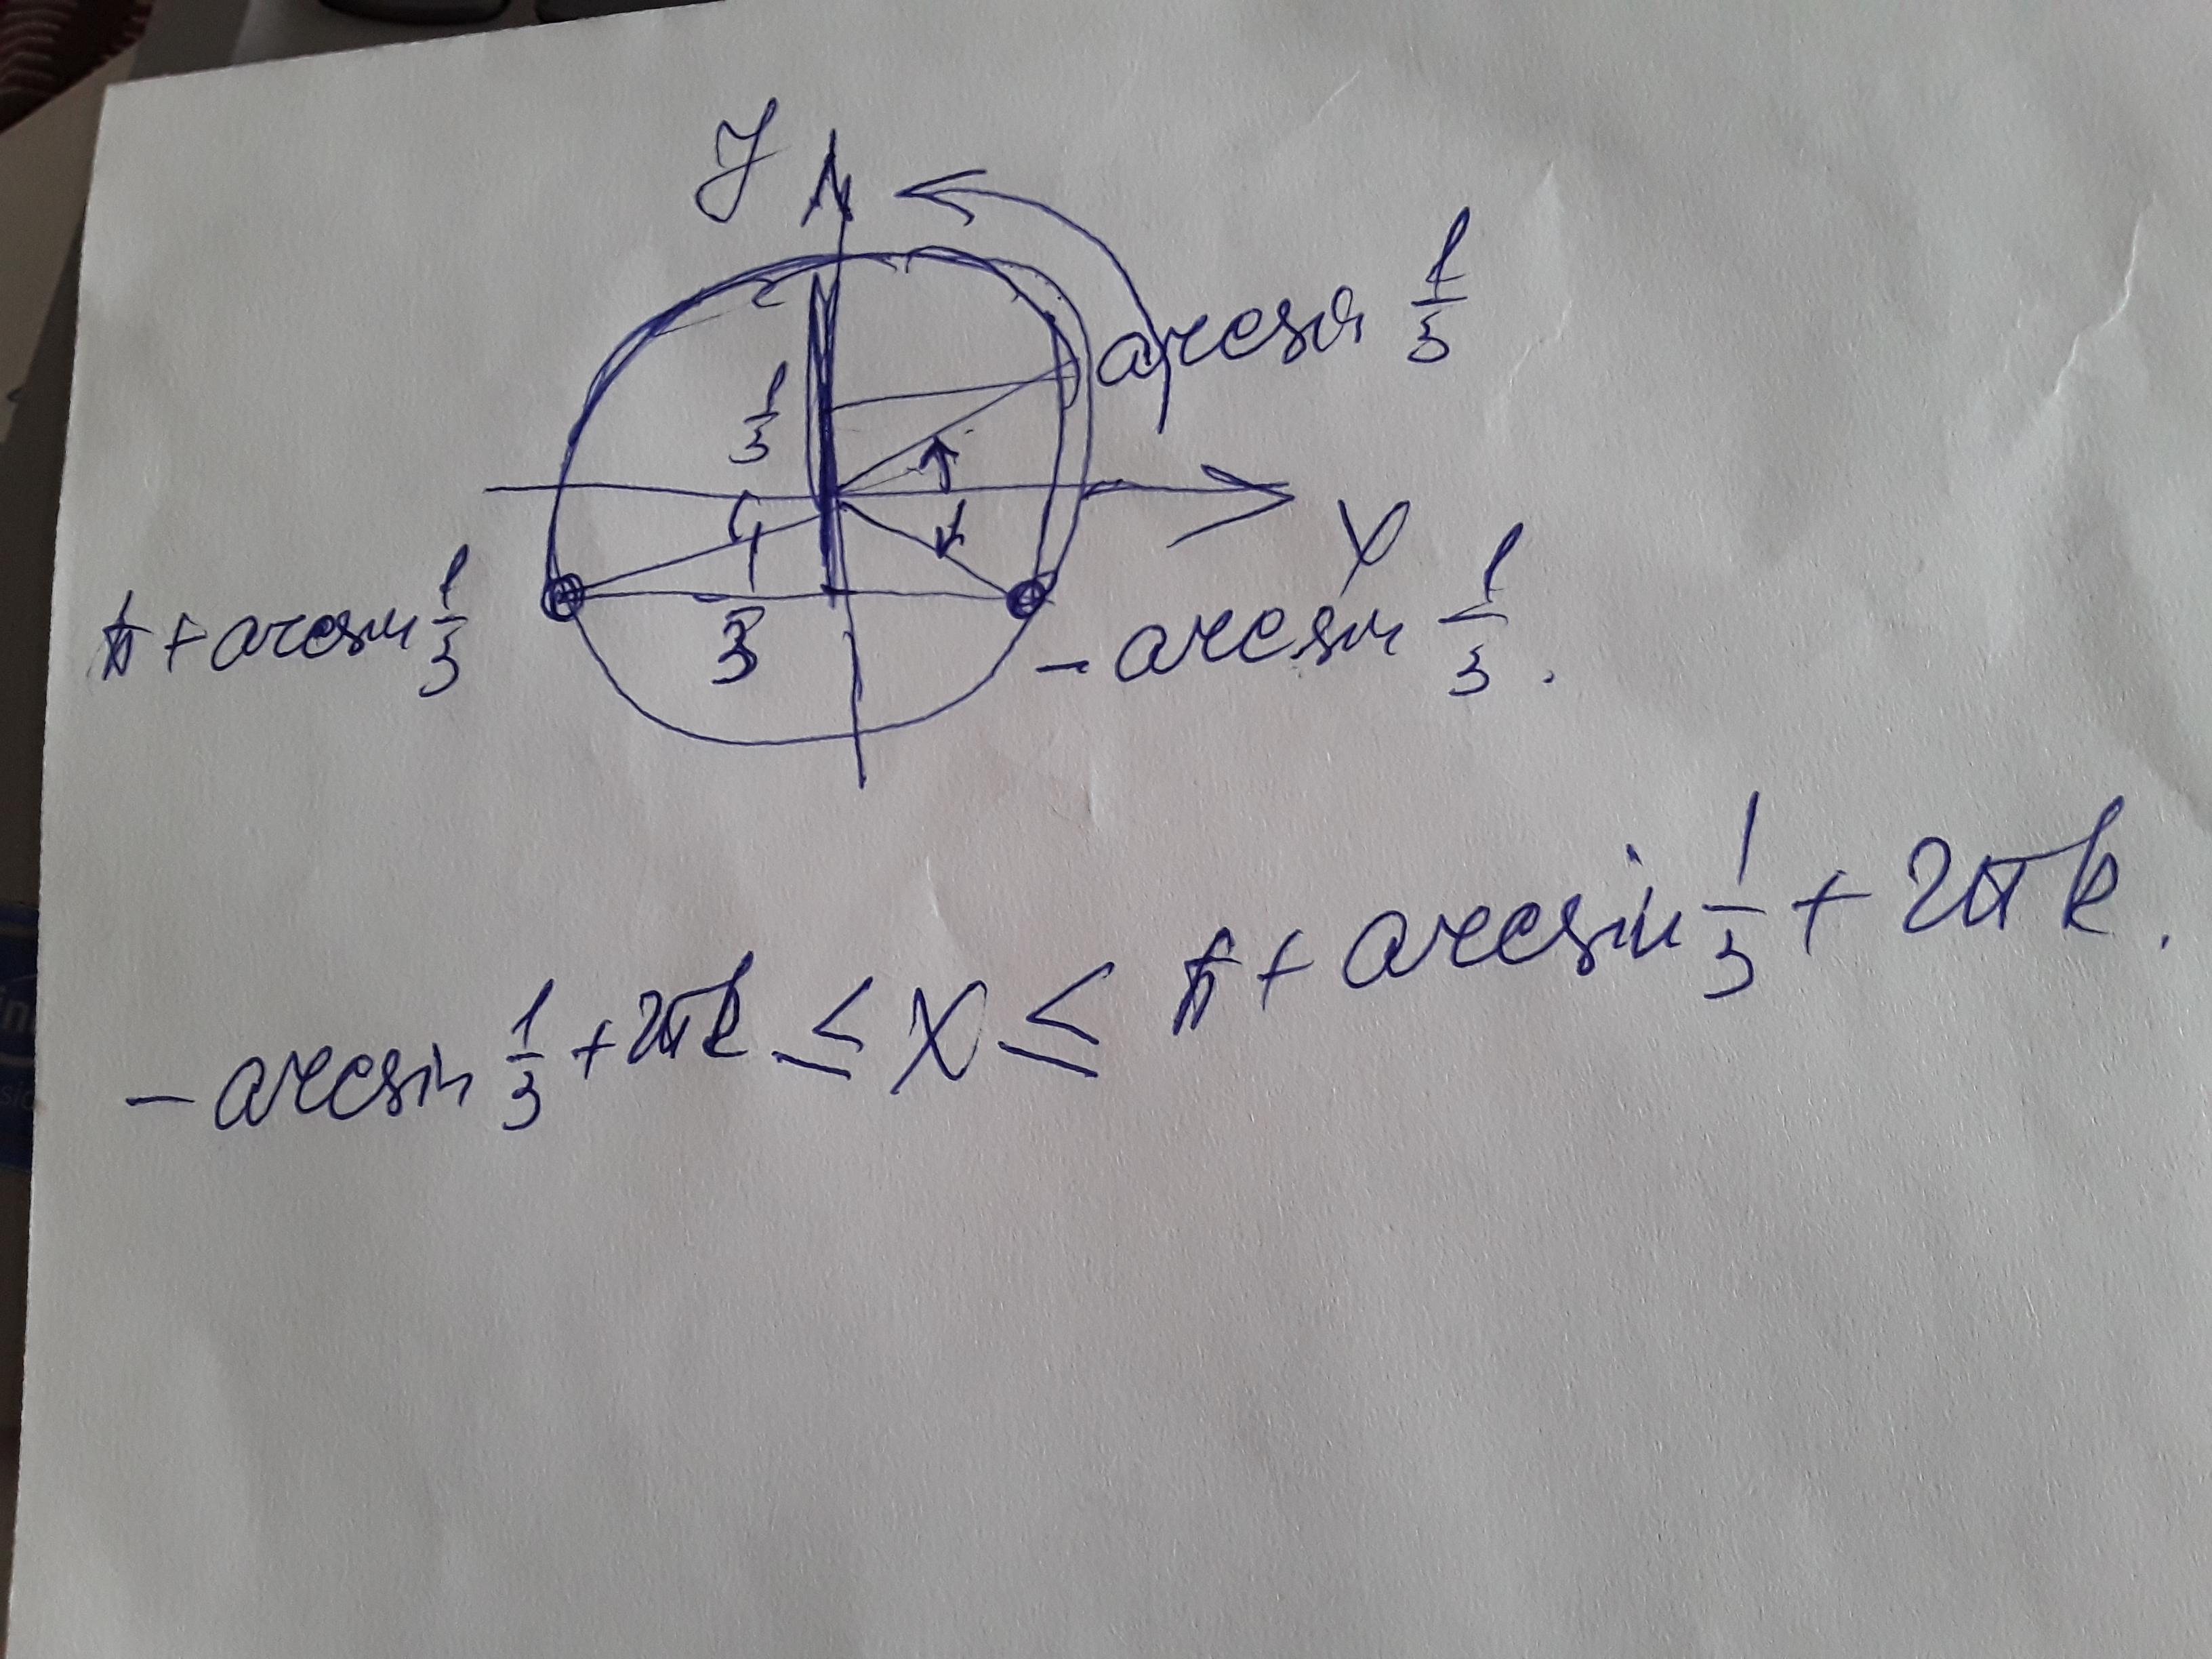 y
arcsin 1/3
1/3
x
π + arcsin 1/3
1/3
- arcsin 1/3.
- arcsin 1/3 + 2πk ≤ x ≤ π + arcsin 1/3 + 2πk.